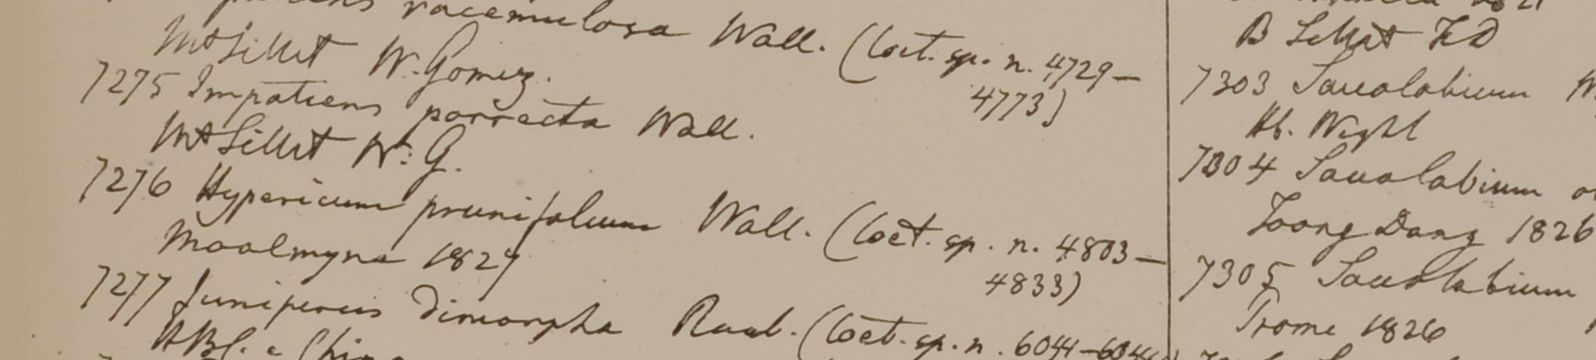 racemulosa Wall. (Coct. sp. n. 4729-
Mt Sillet W. Gomez. 4773)
7275 Impatiens porrecta Wall.
Mt Sillet W. G.
7276 Hypericum prunifolium Wall. (Coct. sp. n. 4803-
Moalmyne 1827 4833)
7277 Juniperus dimorpha Roxb. (Coct. sp. n. 6041-
HBC. e China
B Sillet FD
7303 Saccolabium
Hb. Wight
7304 Saccolabium
Toong Dong 1826
7305 Saccolabium
Prome 1826